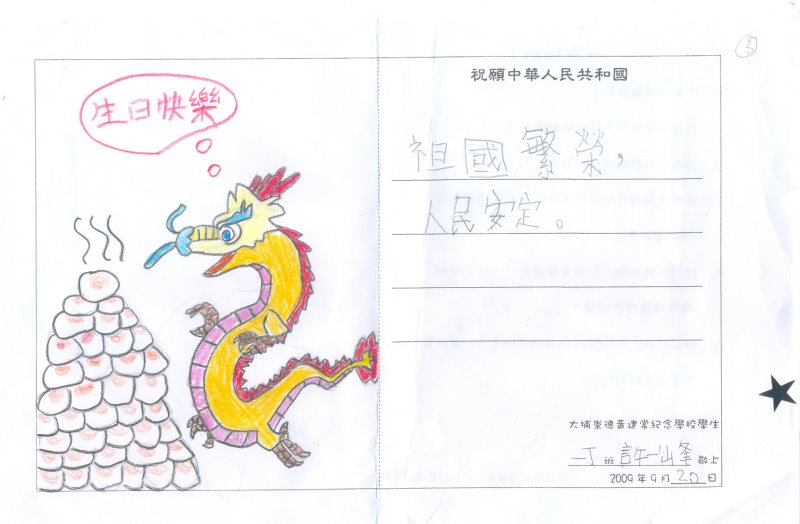 3
生日快樂
祝願中華人民共和國
祖國繁榮，
人民安定。
大埔崇德黃建常紀念學校學生
一丁 班 許一山峯 敬上
2009年9月20日